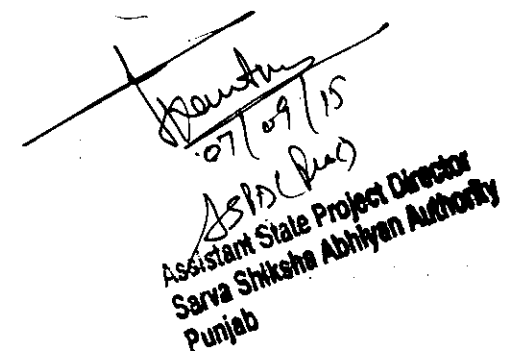 07/09/15
ASPD (
Assistant State Project Director
Sarva Shiksha Abhiyan Authority
Punjab